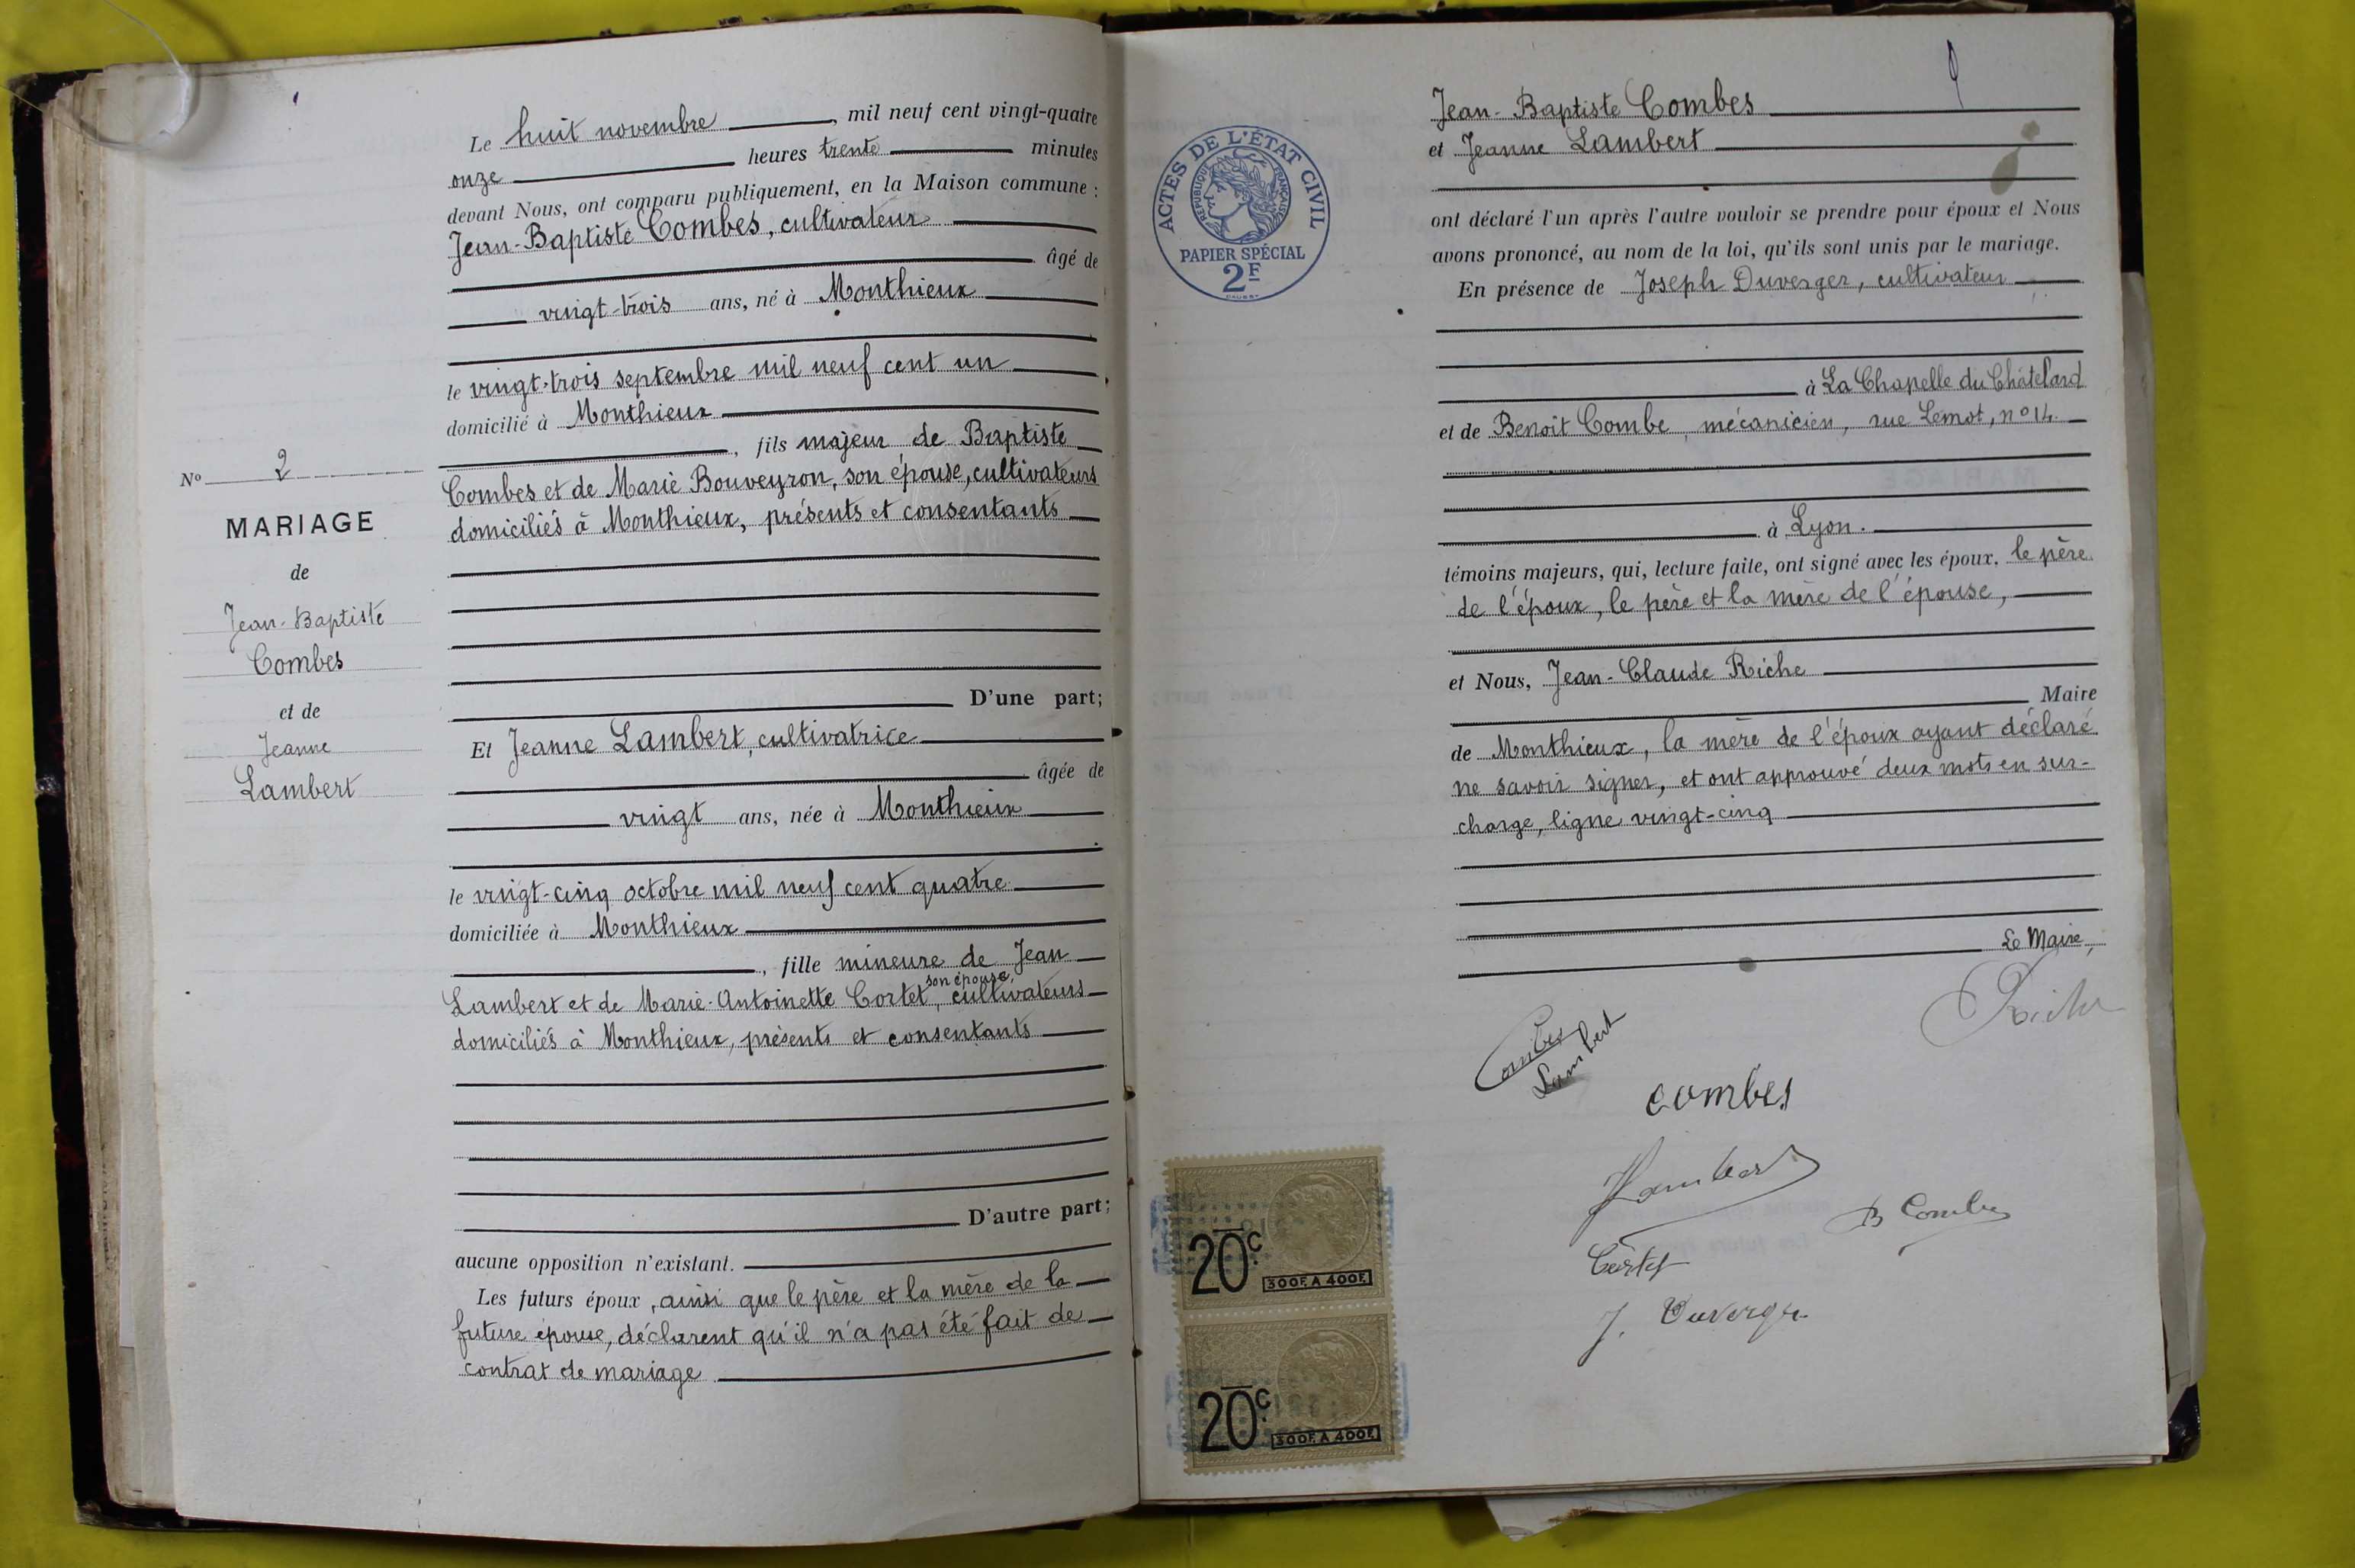 Le huit novembre, mil neuf cent vingt-quatre
onze heures trente minutes
devant Nous, ont comparu publiquement, en la Maison commune :
Jean-Baptiste Combes, cultivateur
âgé de
vingt-trois ans, né à Monthieux
le vingt-trois septembre mil neuf cent un
domicilié à Monthieux
, fils majeur de Baptiste
Combes et de Marie Bouveyron, son épouse, cultivateurs
domiciliés à Monthieux, présents et consentants
D'une part;
Et Jeanne Lambert, cultivatrice
âgée de
vingt ans, née à Monthieux
le vingt-cinq octobre mil neuf cent quatre
domiciliée à Monthieux
, fille mineure de Jean
son épouse,
Lambert et de Marie-Antoinette Cortet, cultivateurs
domiciliés à Monthieux, présents et consentants
D'autre part;
aucune opposition n'existant.
Les futurs époux, ainsi que le père et la mère de la
future épouse, déclarent qu'il n'a pas été fait de
contrat de mariage
No 2
MARIAGE
de
Jean-Baptiste
Combes
et de
Jeanne
Lambert
ACTES DE L'ÉTAT CIVIL
RÉPUBLIQUE FRANÇAISE
PAPIER SPÉCIAL
2F
Jean-Baptiste Combes
et Jeanne Lambert
ont déclaré l'un après l'autre vouloir se prendre pour époux et Nous
avons prononcé, au nom de la loi, qu'ils sont unis par le mariage.
En présence de Joseph Duverger, cultivateur
à La Chapelle du Châtelard
et de Benoit Combe, mécanicien, rue Lemot, no 14
à Lyon.
témoins majeurs, qui, lecture faite, ont signé avec les époux, le père
de l'époux, le père et la mère de l'épouse,
et Nous, Jean-Claude Riche
Maire
de Monthieux, la mère de l'époux ayant déclaré
ne savoir signer, et ont approuvé deux mots en sur-
charge, ligne vingt-cinq
Le Maire,
Riche
Combes
Lambert
combes
Lambert
B Combe
Cortet
J. Duverger
20c.
300F. A 400F.
20c.
300F. A 400F.